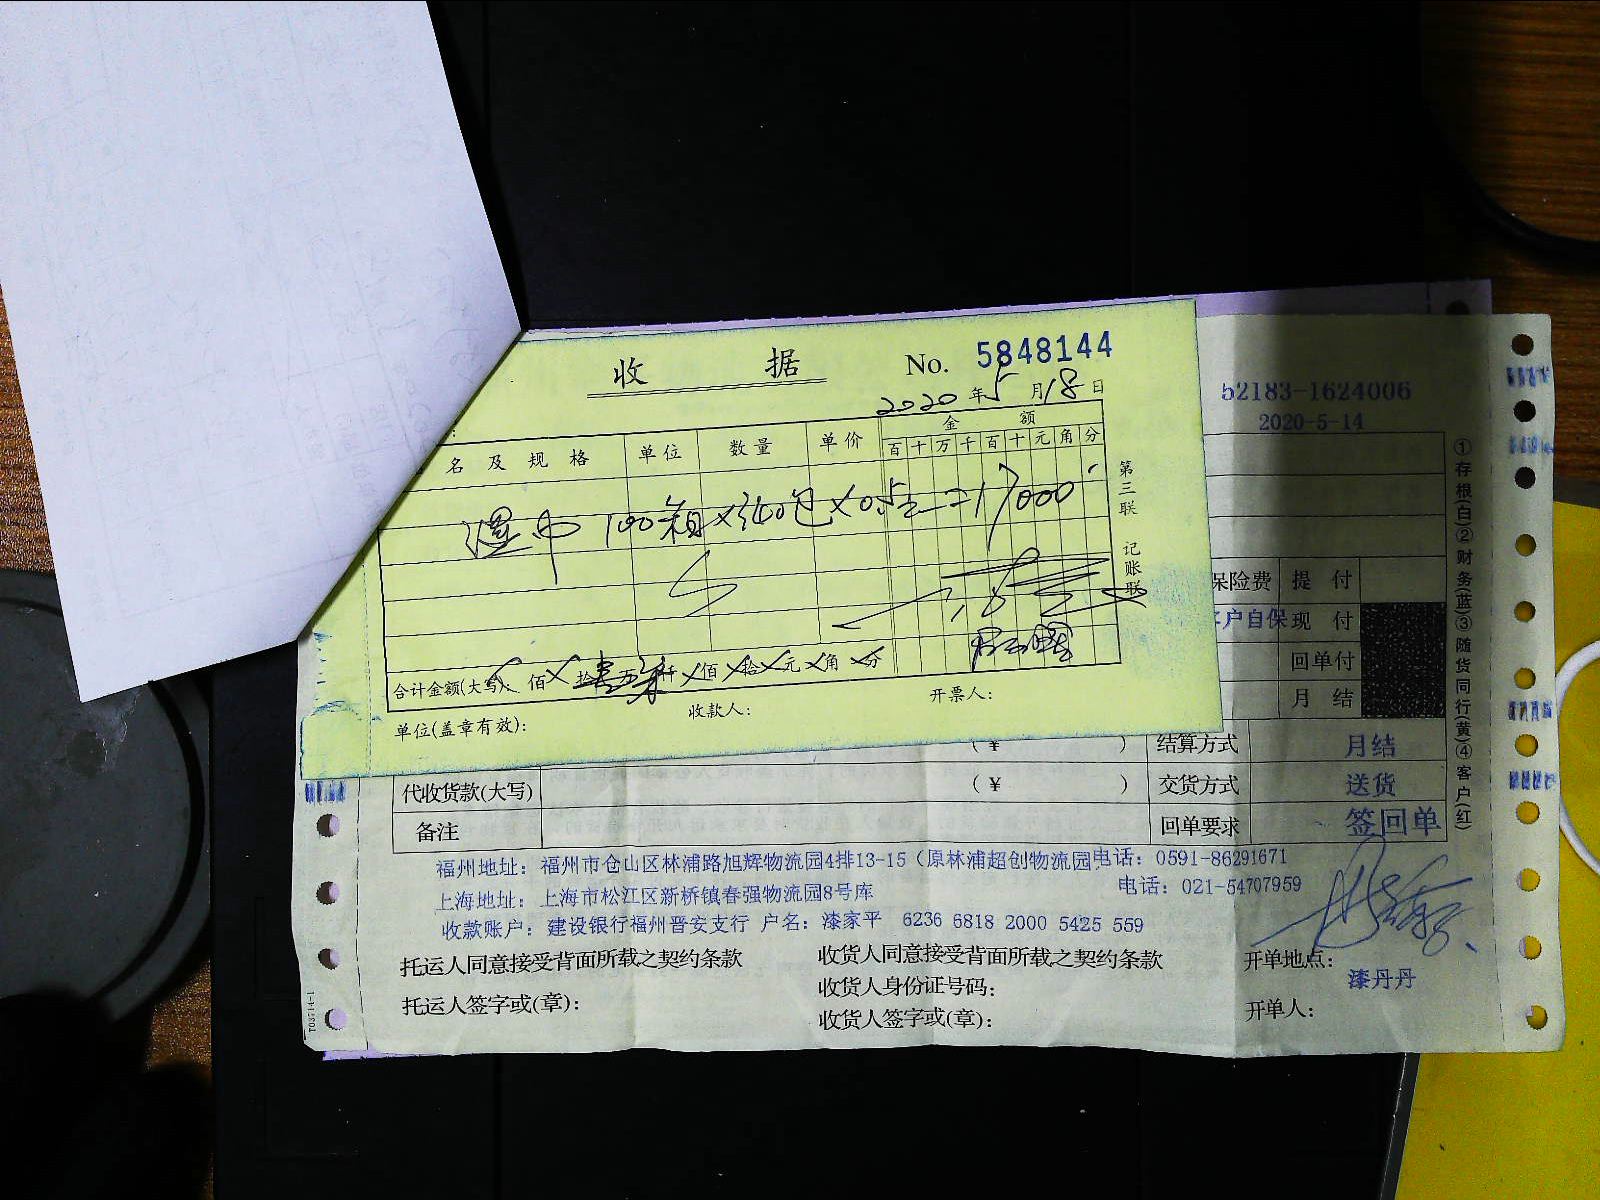 收 据 No. 5848144
2020年5月18日
名 及 规 格 单位 数量 单价 金 额
百 十 万 千 百 十 元 角 分
湿巾 100箱×340包×0.5元=17000
第三联 记账联
合计金额(大写): 佰 拾壹万柒仟 佰 拾 元 角 分
单位(盖章有效): 收款人: 开票人:
52183-1624006
2020-5-14
保险费 提 付
客户自保 现 付
回单付
月 结
①存根(白)②财务(蓝)③随货同行(黄)④客户(红)
(¥ ) 结算方式 月结
代收货款(大写) (¥ ) 交货方式 送货
备注 回单要求 签回单
福州地址: 福州市仓山区林浦路旭辉物流园4排13-15(原林浦超创物流园 电话: 0591-86291671
上海地址: 上海市松江区新桥镇春强物流园8号库 电话: 021-54707959
收款账户: 建设银行福州晋安支行 户名: 漆家平 6236 6818 2000 5425 559
托运人同意接受背面所载之契约条款 收货人同意接受背面所载之契约条款 开单地点:
收货人身份证号码: 漆丹丹
托运人签字或(章): 收货人签字或(章): 开单人: